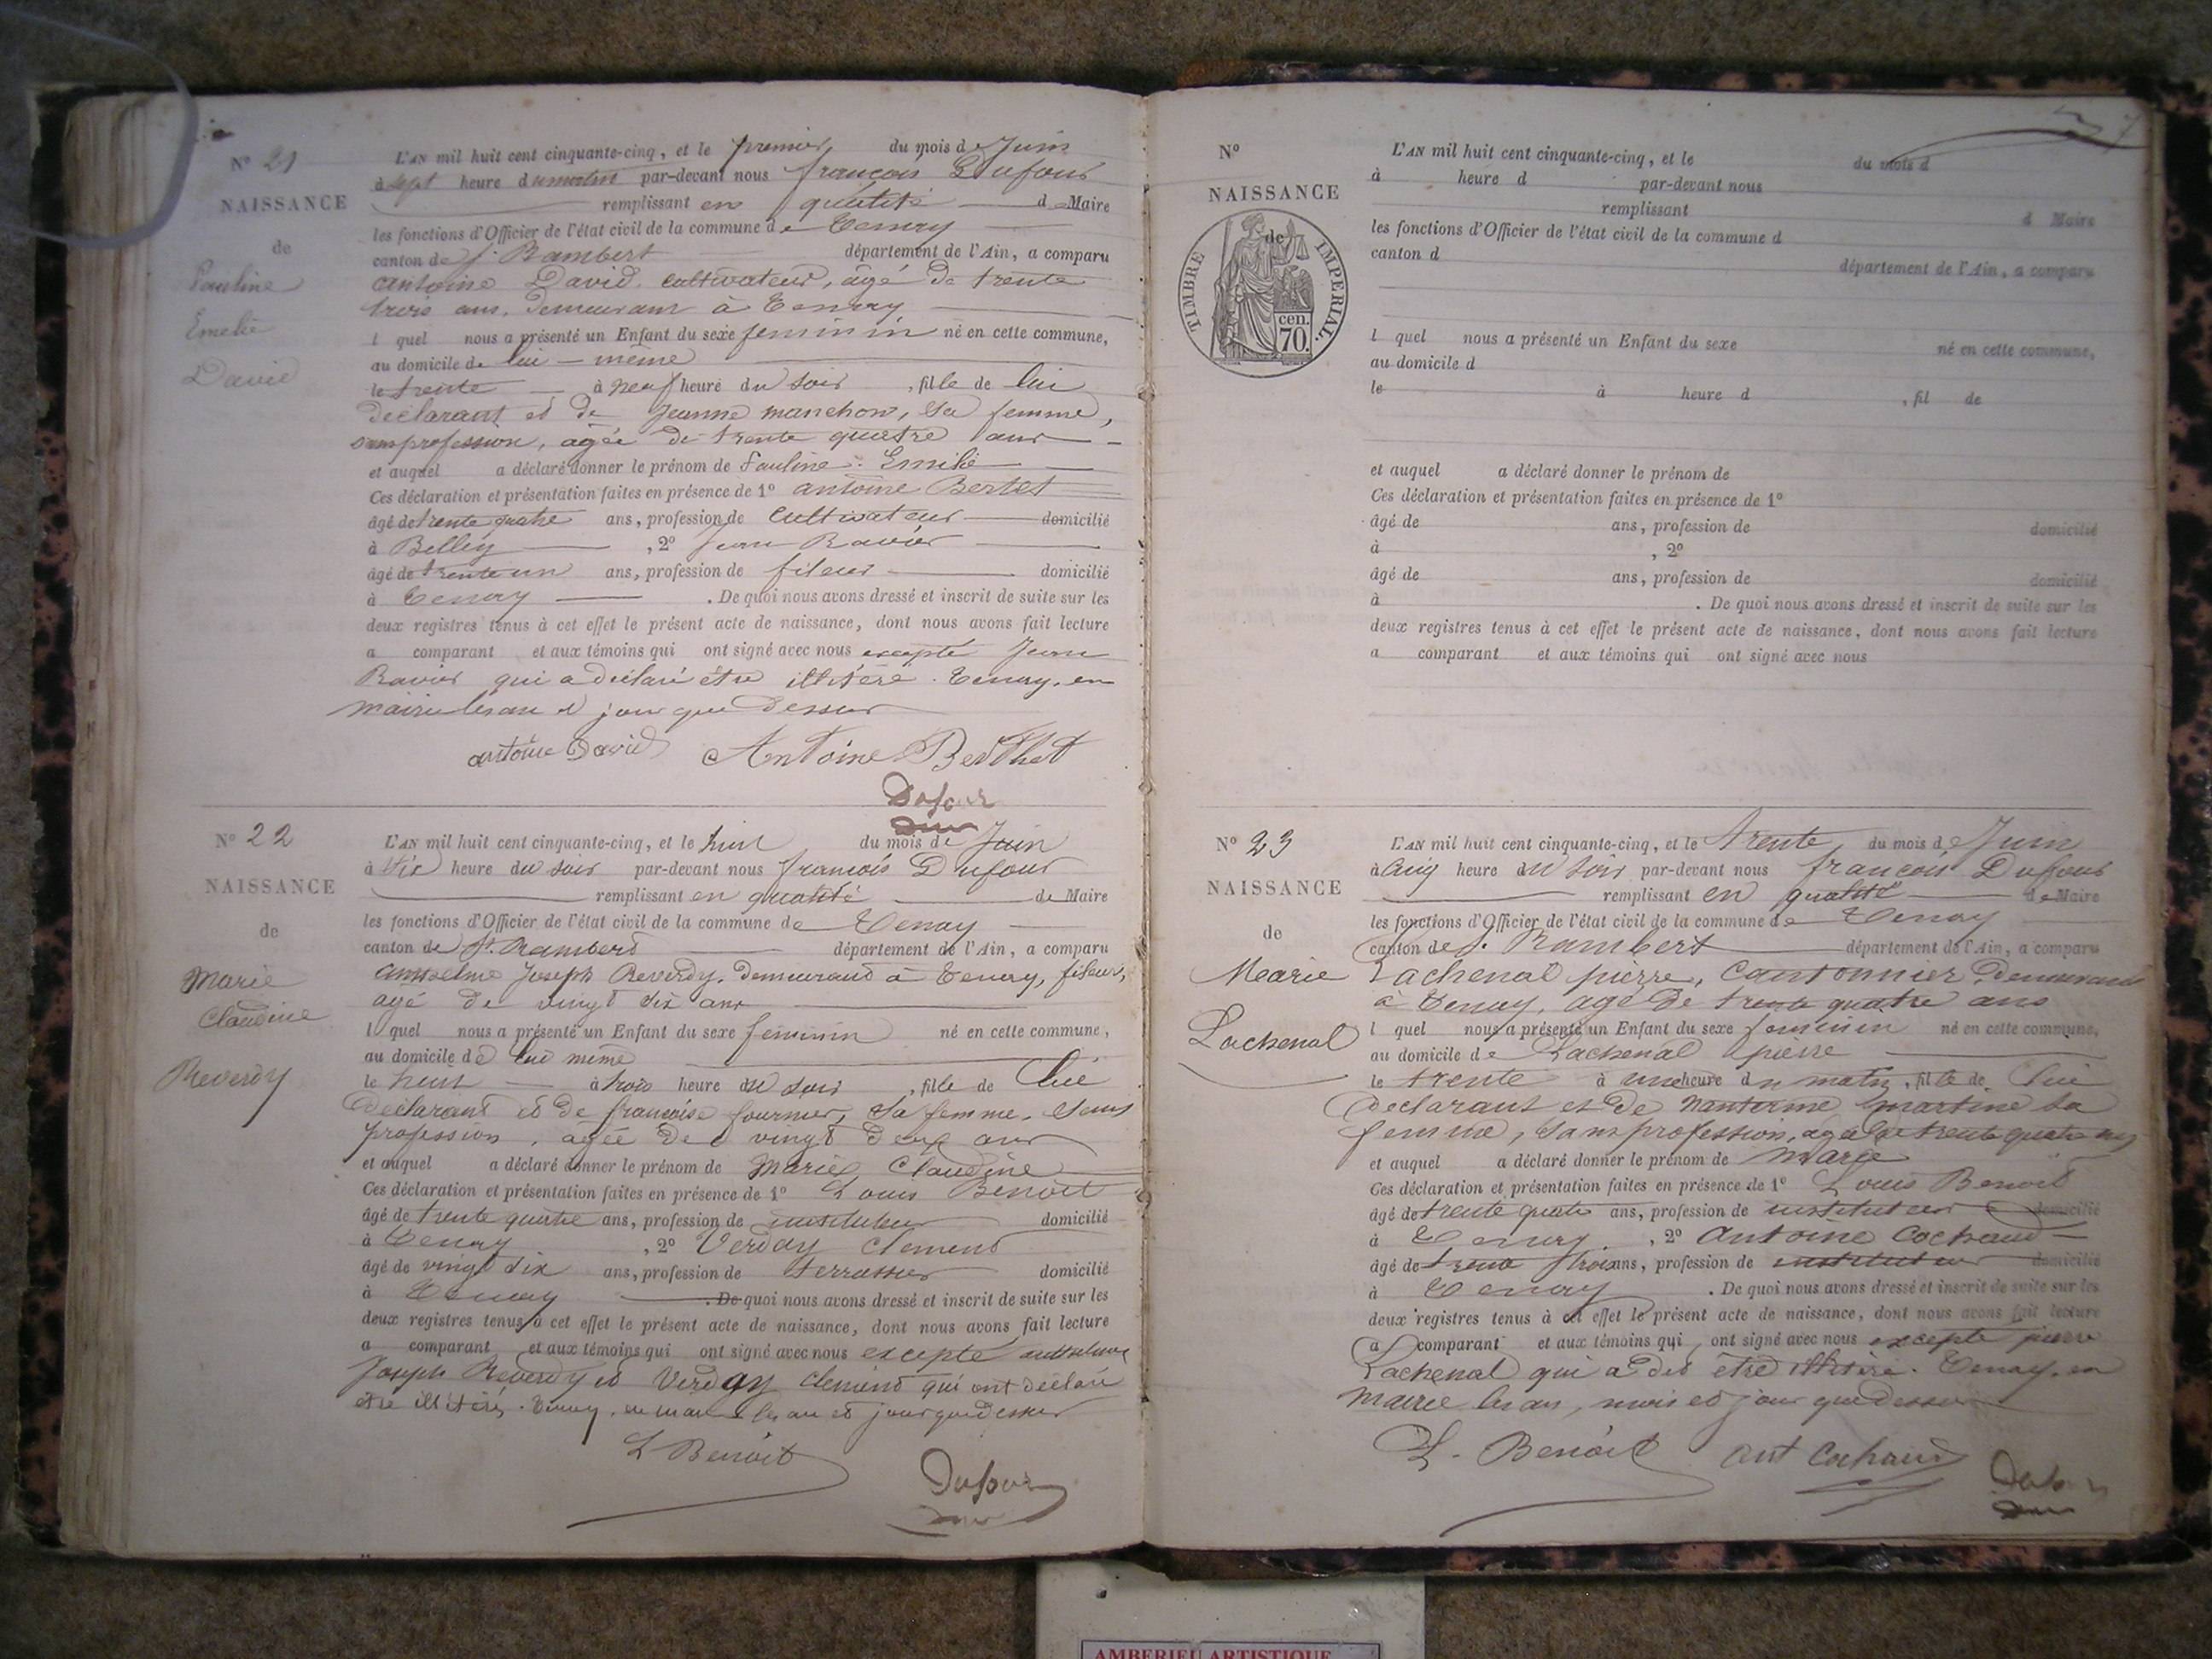 N° 21
NAISSANCE
de
Pauline
Emelie
David
L'AN mil huit cent cinquante-cinq, et le premier du mois de Juin
à sept heure du matin par-devant nous françois Dufour
remplissant en qualité de Maire
les fonctions d'Officier de l'état civil de la commune de Tenay
canton de St. Rambert département de l'Ain, a comparu
antoine David, cultivateur, âgé de trente
trois ans, demeurant à Tenay
l quel nous a présenté un Enfant du sexe feminin né en cette commune,
au domicile de lui-même
le trente à neuf heure du soir, fille de lui
déclarant et de Jeanne manchon, sa femme,
sans profession, agée de trente quatre ans
et auquel a déclaré donner le prénom de Pauline Emilie
Ces déclaration et présentation faites en présence de 1° antoine Bertet
âgé de trente quatre ans, profession de cultivateur domicilié
à Belley, 2° Jean Ravier
âgé de trente un ans, profession de fileur domicilié
à Tenay. De quoi nous avons dressé et inscrit de suite sur les
deux registres tenus à cet effet le présent acte de naissance, dont nous avons fait lecture
a comparant et aux témoins qui ont signé avec nous excepté Jean
Ravier qui a déclaré être illitéré. Tenay, en
mairie les an et jour que dessus
antoine David Antoine Berthet
Dufour
N° 22
NAISSANCE
de
Marie
Claudine
Reverdy
L'AN mil huit cent cinquante-cinq, et le huit du mois de Juin
à six heure du soir par-devant nous françois Dufour
remplissant en qualité de Maire
les fonctions d'Officier de l'état civil de la commune de Tenay
canton de St. Rambert département de l'Ain, a comparu
Joseph Reverdy, demeurand à Tenay, fileur,
agé de vingt six ans
l quel nous a présenté un Enfant du sexe feminin né en cette commune,
au domicile de lui même
le huit à trois heure du soir, fille de lui
déclarant et de françoise fournier, sa femme, sans
profession, agée de vingt deux ans
et auquel a déclaré donner le prénom de Marie Claudine
Ces déclaration et présentation faites en présence de 1° Louis Benoit
âgé de trente quatre ans, profession de instituteur domicilié
à Tenay, 2° Verday Clement
âgé de vingt six ans, profession de terrassier domicilié
à Tenay. De quoi nous avons dressé et inscrit de suite sur les
deux registres tenus à cet effet le présent acte de naissance, dont nous avons fait lecture
a comparant et aux témoins qui ont signé avec nous excepté
Joseph Reverdy et Verday clement qui ont déclaré
être illitérés. Tenay, en mairie les an et jour que dessus
L Benoit
Dufour
7
N°
NAISSANCE
de
TIMBRE IMPERIAL.
cen.
70.
L'AN mil huit cent cinquante-cinq, et le du mois d
à heure d par-devant nous
remplissant d Maire
les fonctions d'Officier de l'état civil de la commune d
canton d département de l'Ain, a comparu
l quel nous a présenté un Enfant du sexe né en cette commune,
au domicile d
le à heure d, fil de
et auquel a déclaré donner le prénom de
Ces déclaration et présentation faites en présence de 1°
âgé de ans, profession de domicilié
à, 2°
âgé de ans, profession de domicilié
à. De quoi nous avons dressé et inscrit de suite sur les
deux registres tenus à cet effet le présent acte de naissance, dont nous avons fait lecture
a comparant et aux témoins qui ont signé avec nous
N° 23
NAISSANCE
de
Marie
Lachenal
L'AN mil huit cent cinquante-cinq, et le trente du mois de Juin
à cinq heure du soir par-devant nous françois Dufour
remplissant en qualité de Maire
les fonctions d'Officier de l'état civil de la commune de Tenay
canton de St. Rambert département de l'Ain, a comparu
Lachenal pierre, Cantonnier, demeurant
à Tenay, agé de trente quatre ans
l quel nous a présenté un Enfant du sexe feminin né en cette commune,
au domicile de Lachenal pierre
le trente à une heure du matin, fille de lui
declarant et de nanterme martine sa
femme, sans profession, agée de trente quatre ans
et auquel a déclaré donner le prénom de marie
Ces déclaration et présentation faites en présence de 1° Louis Benoit
âgé de trente quatre ans, profession de instituteur domicilié
à Tenay, 2° Antoine Cochaud
âgé de trente trois ans, profession de instituteur domicilié
à Tenay. De quoi nous avons dressé et inscrit de suite sur les
deux registres tenus à cet effet le présent acte de naissance, dont nous avons fait lecture
a comparant et aux témoins qui ont signé avec nous excepté pierre
Lachenal qui a dit etre illitéré. Tenay, en
mairie les an, mois et jour que dessus
L. Benoit ant Cochaud
Dufour
AMBERIEU ARTISTIQUE